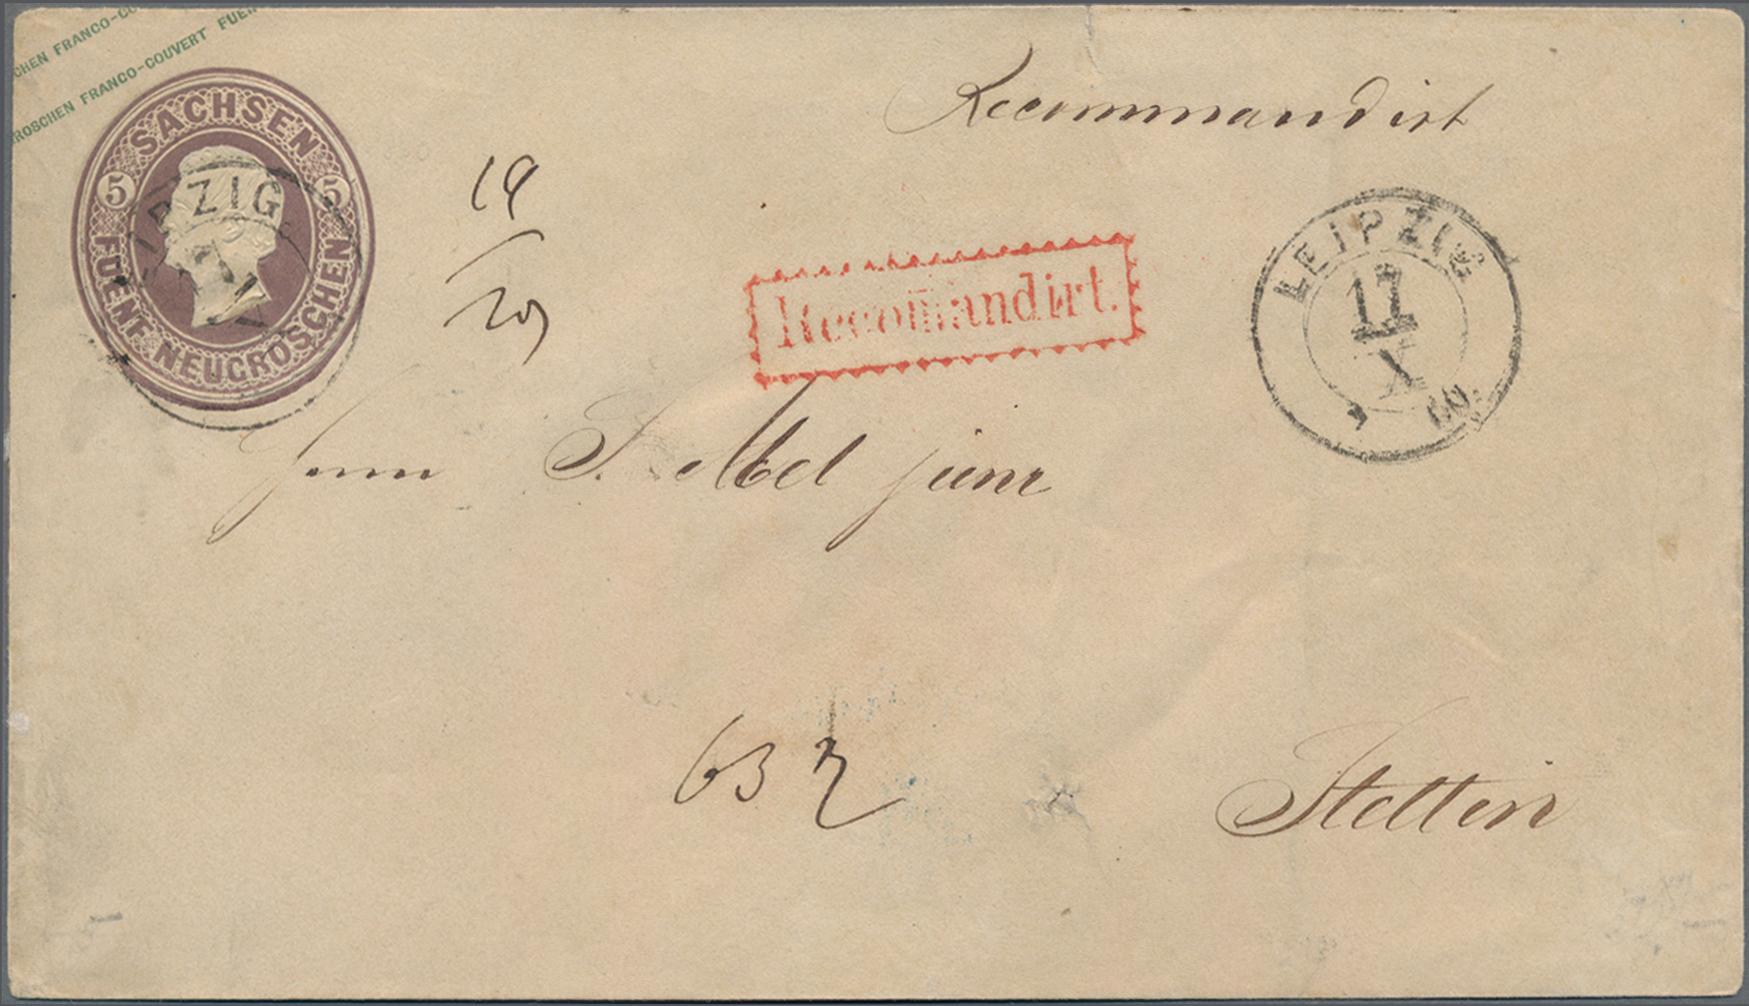 CHEN FRANCO-CO
ROSCHEN FRANCO-COUVERT FUE
SACHSEN
5 5
FUENF NEUGROSCHEN
Recommandirt
Recomandirt.
LEIPZIG
17
X
60.
Herrn S. Abel junr
63
Stettin